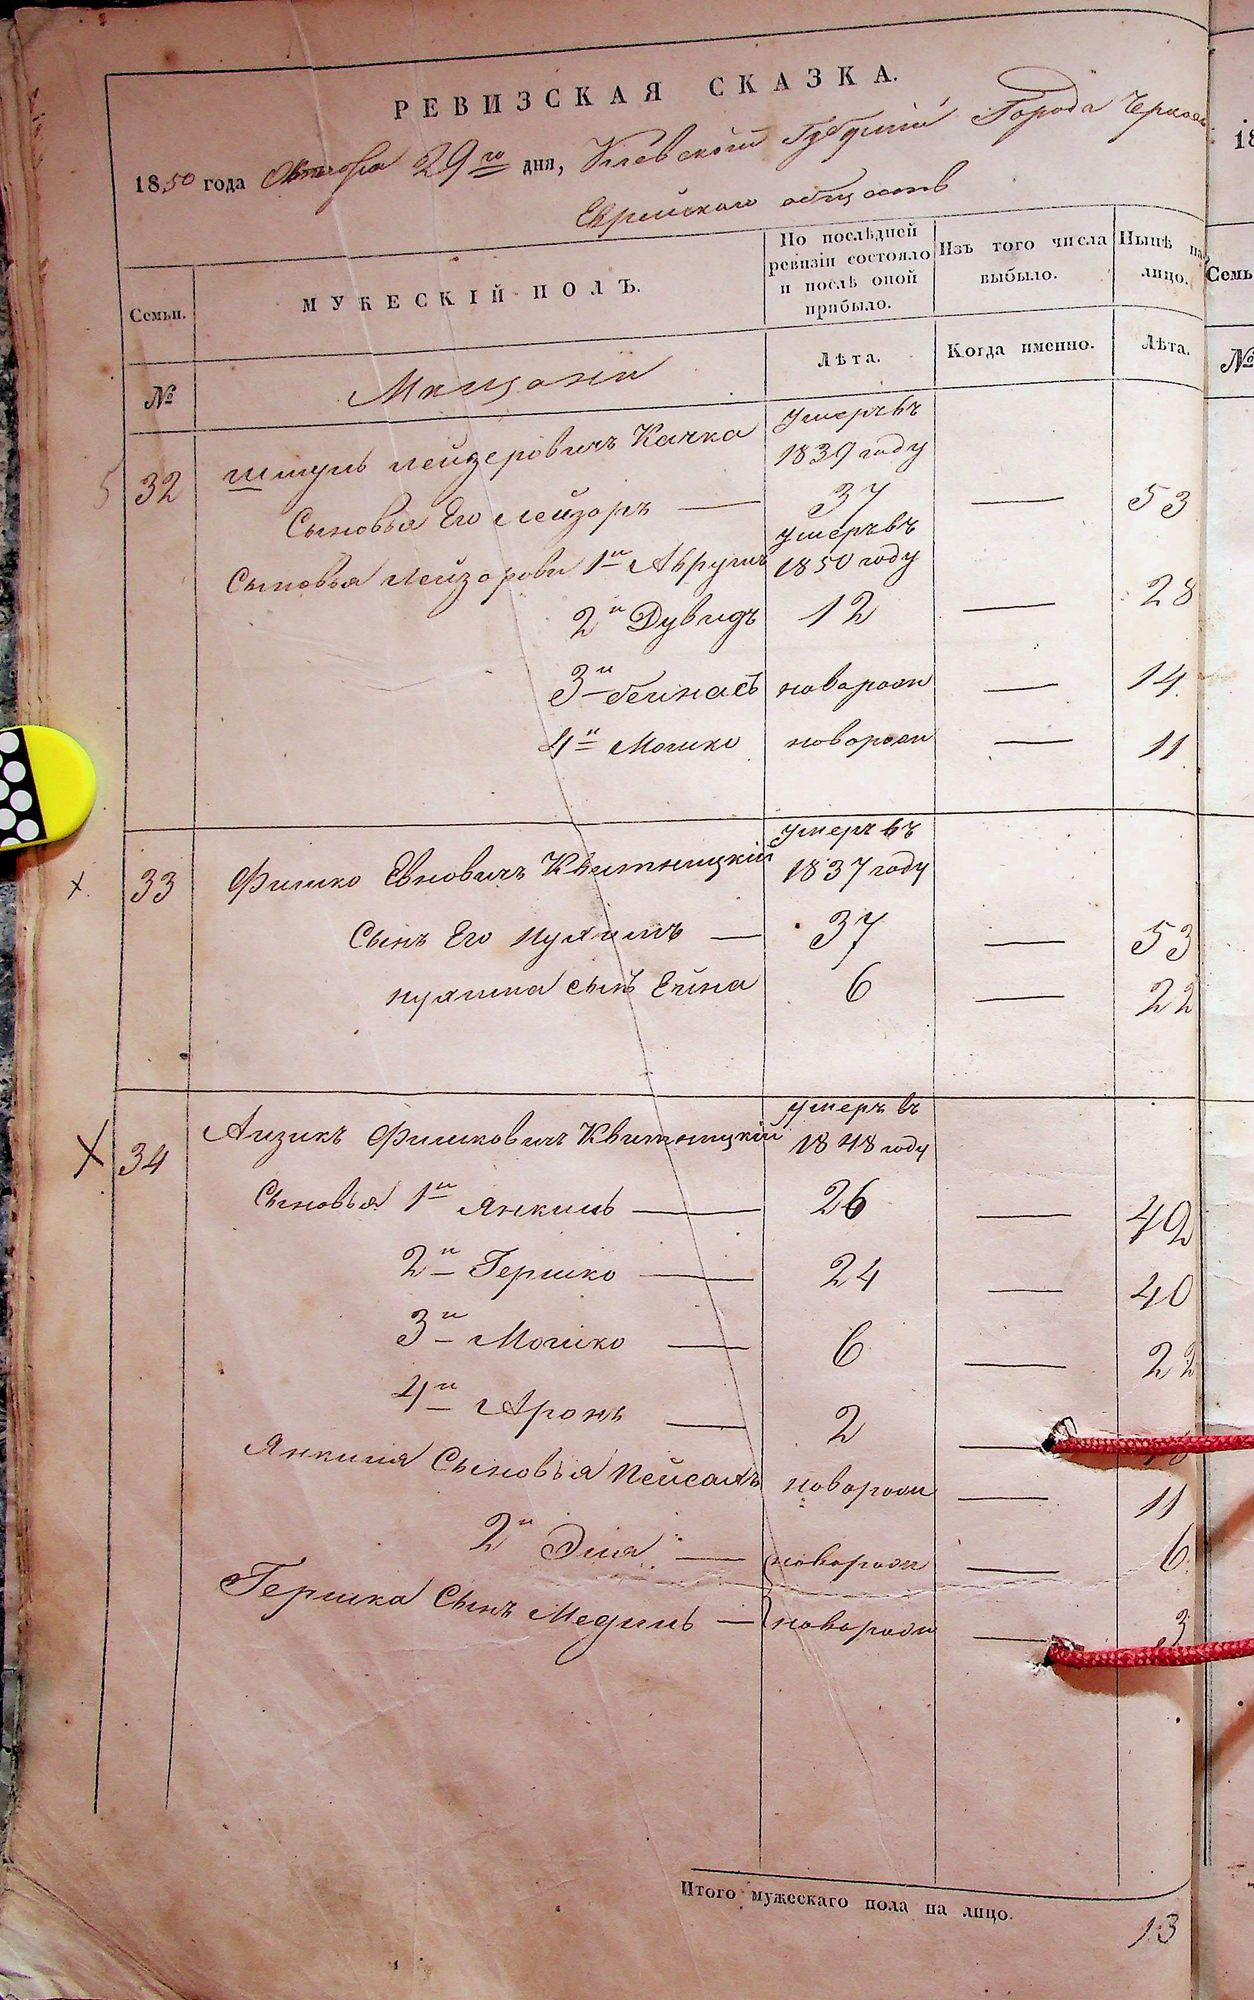 РЕВИЗСКАЯ СКАЗКА.
1850 года Октября 29го дня, Киевской Губернии Города
Еврейскаго общества
Семьи.
МУЖЕСКІЙ ПОЛЪ.
По послѣдней ревизіи состояло и послѣ оной прибыло.
Изъ того числа выбыло.
Нынѣ на лицо.
№
Лѣта.
Когда именно.
Лѣта.
Мещане
32 Шмуль Лейзеровичъ Качка умеръ въ 1839 году
Сыновья Его Лейзоръ — 37 — 53
Сыновья Лейзорови 1й Аврумъ умеръ въ 1850 году
2й Дувидъ 12 — 28
3й новорожд — 14
4й Мошко новорожд — 11
х. 33 Фишко Евновичъ Квитницкій умеръ въ 1837 году
Сынъ Его Нухимъ — 37 — 53
Нухима сынъ Ейна 6 — 22
Х 34 Аизикъ Фишковичъ Квитницкій умеръ въ 1848 году
Сыновья 1й Янкиль — 26 — 42
2й Гершко — 24 — 40
3й Мошко — 6 — 22
4й Аронъ — 2 —
Янкиля Сыновья Пейсахъ новорожд — 11
2й Эля — новорожд — 6
Гершка Сынъ — новорожд — 3
Итого мужескаго пола на лицо.
13
18
Семьи
№